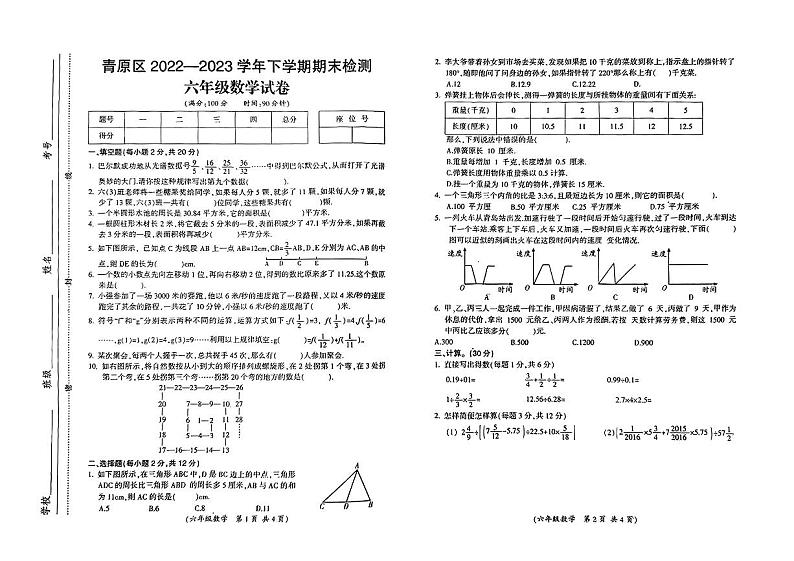 学校
班级
姓名
考号
密
封
线
青原区 2022—2023 学年下学期期末检测
六年级数学试卷
(满分:100 分 时间:90 分钟)
题号 一 二 三 四 总分
得分
座 位 号
一、填空题(每小题 2 分,共 20 分)
1. 巴尔默成功地从光谱数据号 9/5、16/12、25/21、36/32……中得到巴尔默公式,从而打开了光谱
奥妙的大门.请你按这种规律写出第九个数据( ).
2. 六(3)班老师将一些糖果奖给同学, 如果每人分 5 颗, 就多了 11 颗, 如果每人分 7 颗, 就
少了 13 颗, 六(3)班一共有( )位同学, 这些糖果共有( )颗.
3. 一个半圆形水池的周长是 30.84 平方米, 它的面积是( )平方米.
4. 一根圆柱形木材长 2 米, 将它截去 5 分米的一段, 表面积减少了 47.1 平方分米, 如果再截
去 3 分米的一段, 表面积再减少( )平方分米.
5. 如下图所示, 已知点 C 为线段 AB 上一点 AB=12cm,CB=2/3AB,D、E 分别为 AC、AB 的中
点, 则 DE 的长为( )cm.
A D C E B
6. 一个数的小数点先向左移动 1 位,再向右移动 2 位, 得到的数比原来多了 11.25.这个数原
来是( ).
7. 小强参加了一场 3000 米的赛跑, 他以 6 米/秒的速度跑了一段路程, 又以 4 米/秒的速度
跑完了其余的路程, 一共花了 10 分钟, 小强以 6 米/秒的速度跑了( )米.
8. 符号“f”和“g”分别表示两种不同的运算, 运算方式如下:f(1/2)=3, f(1/3)=4,f(1/5)=6
……,g(1)=1,g(2)=4,g(3)=9……利用以上规律填空:g( )=f(1/12)+f(1/11).
9. 某次聚会, 每两个人握手一次, 总共握手 45 次, 那么有( )人参加聚会.
10. 如右图所示, 将自然数按从小到大的顺序排列成螺旋形, 在 2 处拐第 1 个弯, 在 3 处拐
第二个弯, 在 5 处拐第三个弯……拐第 20 个弯的地方的数是( ).
21—22—23—24—25—26
20 7—8—9—10 27
19 6 1—2 11 28
18 5—4—3 12
17—16—15—14—13
二、选择题(每小题 2 分, 共 12 分)
1. 如下图所示, 在三角形 ABC 中, D 是 BC 边上的中点, 三角形
ADC 的周长比三角形 ABD 的周长多 5 厘米, AB 与 AC 的和
为 11cm, 则 AC 的长是( )cm.
A.5 B.6 C.8 D.11
A
C D B
(六年级数学 第 1 页 共 4 页)
2. 李大爷带着孙女到市场去买菜, 发现如果把 10 千克的菜放到称上, 指示盘上的指针转了
180°, 随即他问了问身边的孙女, 如果指针转了 220°那么称上有( )千克菜.
A.12 B.12.9 C.12.22 D.
3. 弹簧挂上物体后会伸长, 测得一弹簧的长度与所挂物体的重量间有下面关系:
重量(千克) 0 1 2 3 4 5
长度(厘米) 10 10.5 11 11.5 12 12.5
那么, 下列说法中错误的是( ).
A.弹簧原长 10 厘米.
B.重量每增加 1 千克,长度增加 0.5 厘米.
C.弹簧长度用物体重量乘以 0.5 计算.
D.挂一个重量为 10 千克的物体, 弹簧长 15 厘米.
4. 一个三角形三个内角的比是 3:3:6, 且最短边长为 10 厘米, 则它的面积是( ).
A.100 平方厘 B.50 平方厘米 C.25 平方厘米 D.75 平方厘米
5. 一列火车从青岛站出发,加速行驶了一段时间后开始匀速行驶,过了一段时间,火车到达
下一个车站.乘客上下车后, 火车又加速, 一段时间后火车再次匀速行驶, 下面( )
图可以近似的刻画出火车在这段时间内的速度 变化情况.
速度 速度 速度 速度
时间 时间 时间 时间
A B C D
6. 甲、乙、丙三人一起完成一件工作, 甲因病请假了, 结果乙做了 6 天, 丙做了 9 天, 甲作为
休息的代价, 拿出 1500 元给乙、丙两人作为报酬.若按 天数计算劳务费, 则这 1500 元
中丙比乙应该多分( )元.
A.300 B.500 C.1200 D.900
三、计算。(30 分)
1. 直接写出得数(每题 1 分, 共 6 分)
0.19÷01= 3/4+1/2+1/2= 0.99÷0.1=
1÷2/3×3/2= 12.56÷6.28= 2.7×4×2.5=
2. 怎样简便怎样算(每题 3 分, 共 12 分)
(1) 2 4/9÷[(7 5/12-5.75)÷22.5+10×5/18] (2)(2 1/2016×5 3/4+7 2015/2016×5.75)÷57 1/2
(六年级数学 第 2 页 共 4 页)